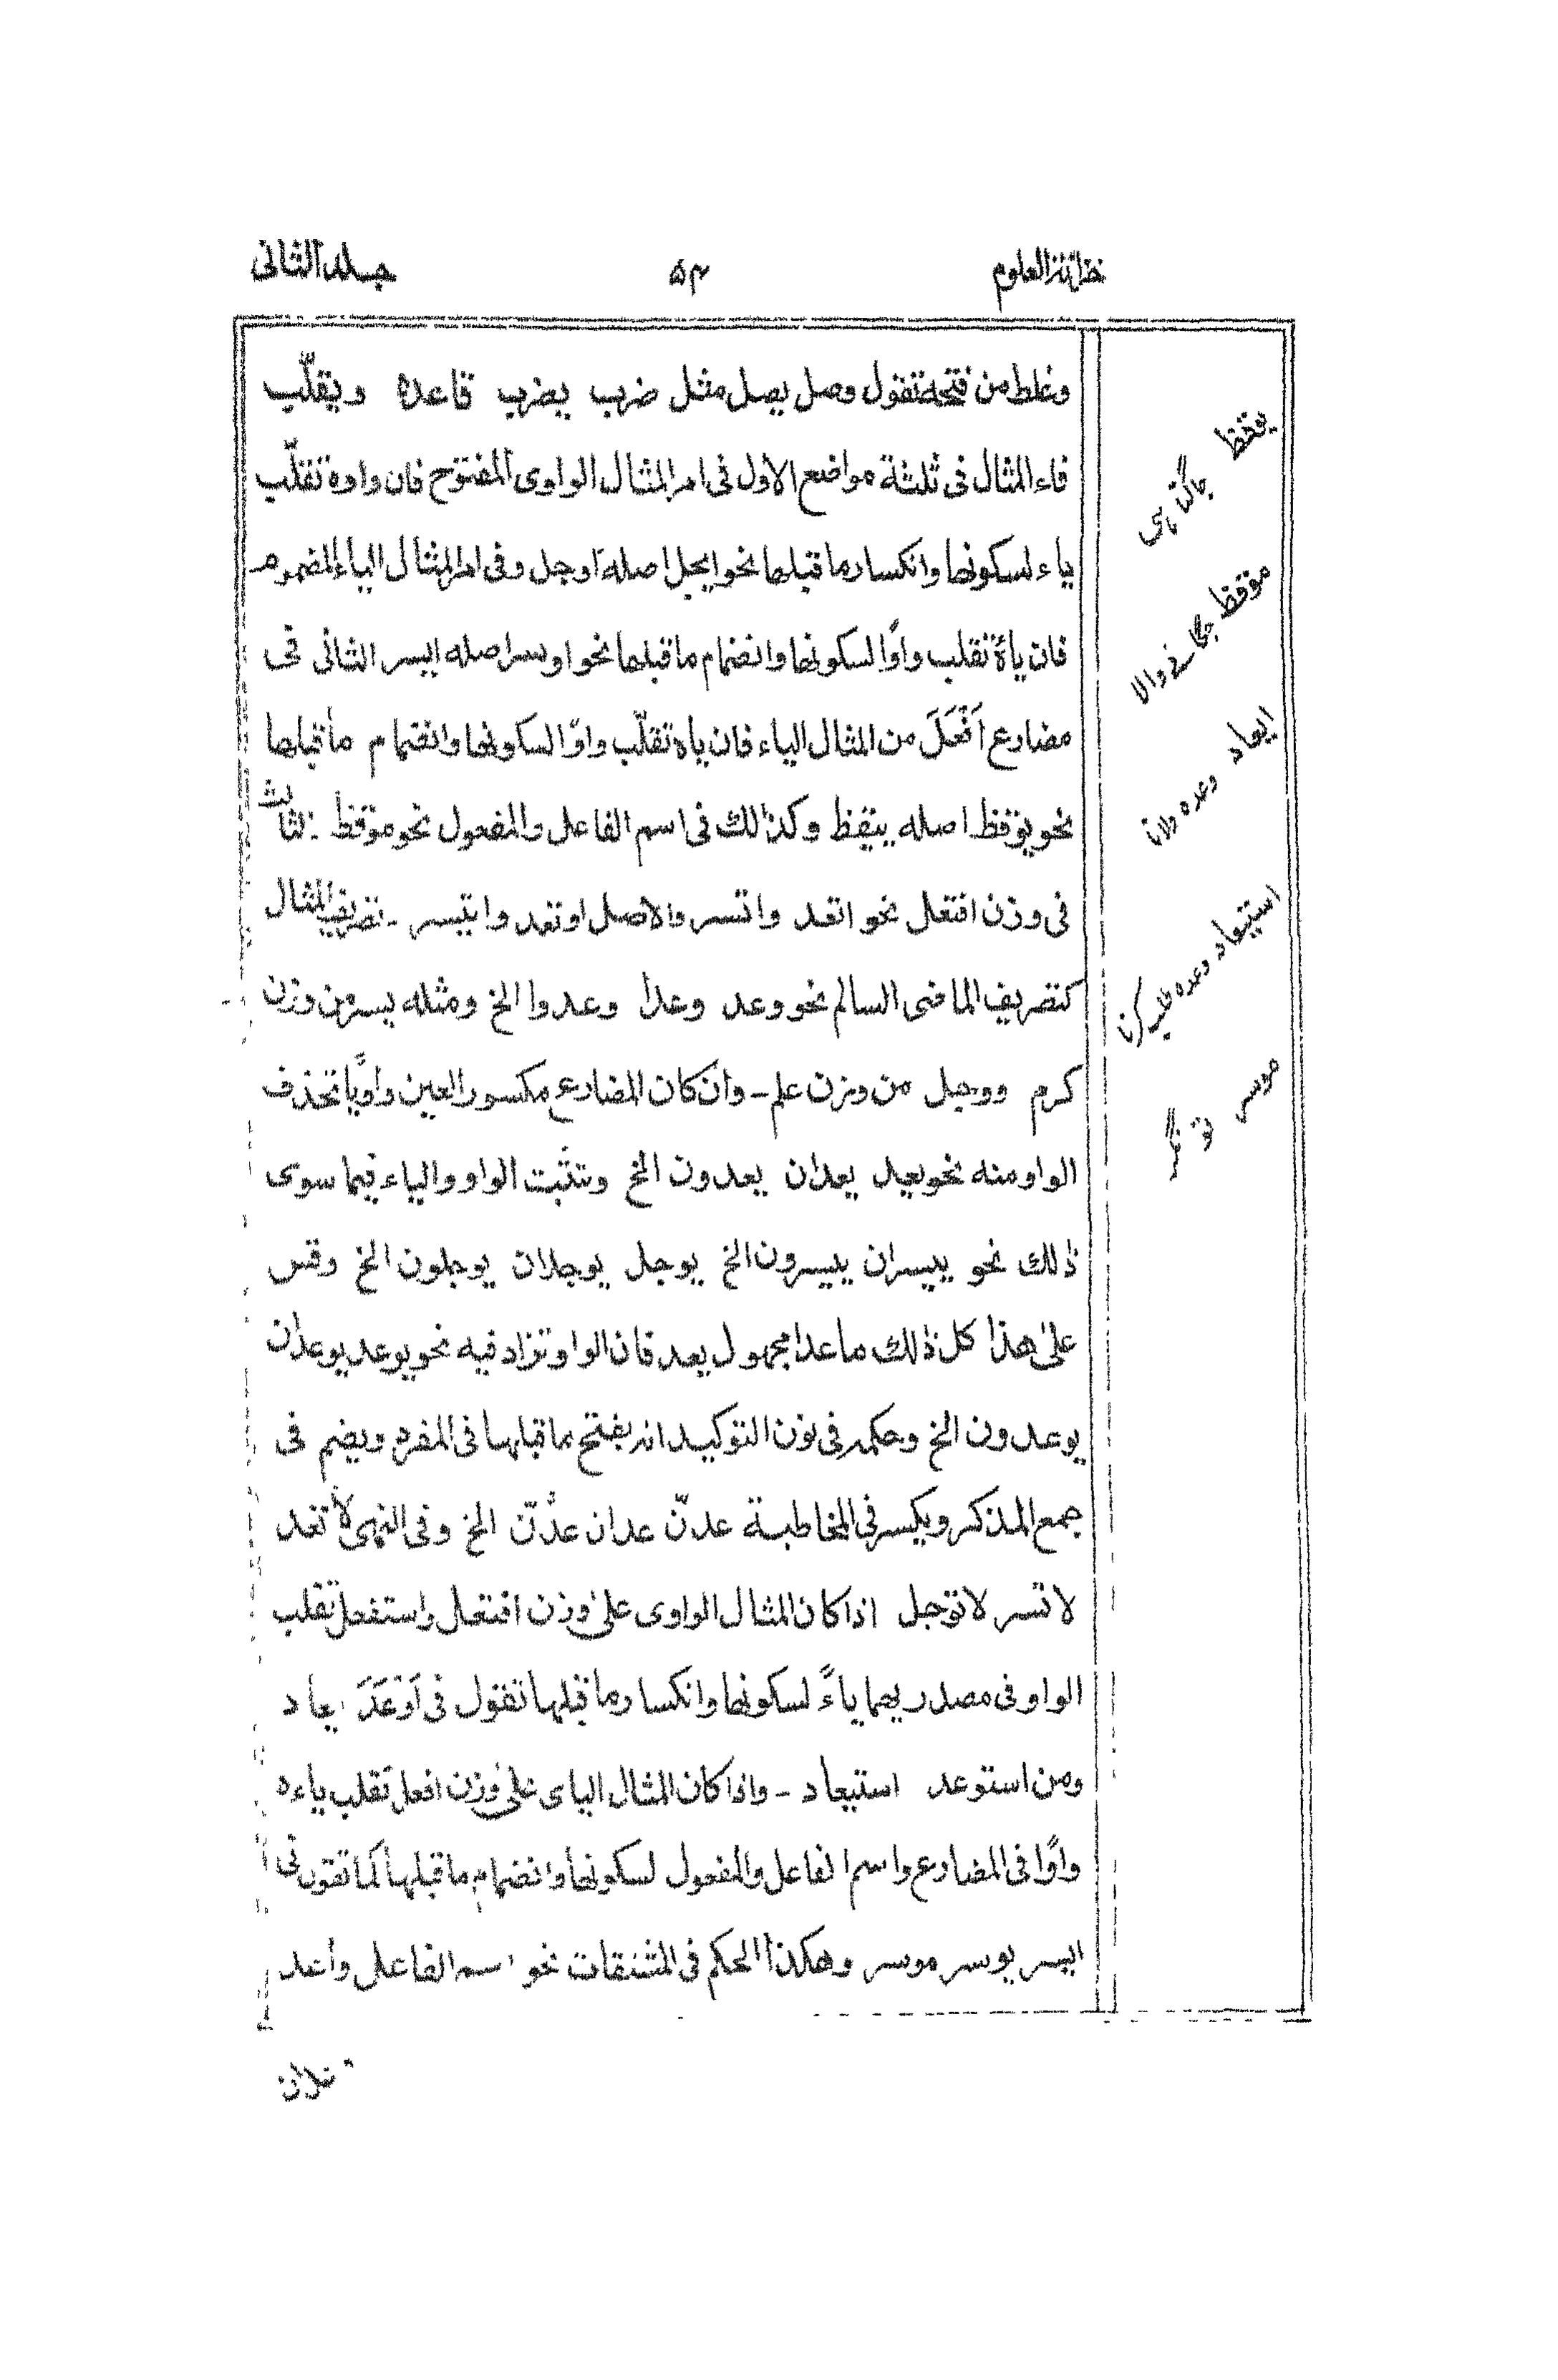 خزائن العلوم ۵۴ جلد الثانی
وغلط من فتحه تقول وصل یصل مثل ضرب یضرب قاعدہ ویقلّب
فاء المثال فی ثلثة مواضع الاول فی امر المثال الواوی المفتوح فان واوہ تقلّب
یاء لسکونها وانکسار ما قبلها نحو ایجل اصله اوجل وفی امر المثال الیاء المضموم
فان یاءہ تقلب واوًا لسکونها وانضمام ما قبلها نحو اوسر اصله ایسر الثانی فی
مضارع اَفْعَلَ من المثال الیاء فان یاہ تقلّب واوًا لسکونها وانضمام ماقبلها
نحو یوقظ اصله ییقظ وکذالك فی اسم الفاعل والمفعول نحو موقظ الثالث
فی وزن افتعل نحو اتعد واتسر والاصل اوتعد وایتسر - تصریف المثال
کتصریف الماضی السالم نحو وعد وعدا وعدوا الخ ومثله یسر من وزن
کرم ووجل من وزن علم - وان کان المضارع مکسور العین واویًا تحذف
الواو منه نحو یعد یعدان یعدون الخ وتثبت الواو والیاء فیما سوی
ذلك نحو ییسران ییسرون الخ یوجل یوجلان یوجلون الخ وقس
علیٰ هذا کل ذالك ما عدا مجهول یعد فان الواو تزاد فیه نحو یوعد یوعدان
یوعدون الخ وحکمه فی نون التوکید انه یفتح ما قبلها فی المفرد ویضم فی
جمع المذکر ویکسر فی المخاطبة عدنّ عدان عدُنّ الخ وفی النهی لا تعد
لا تسر لا توجل اذا کان المثال الواوی علیٰ وزن افتعل واستفعل تقلب
الواو فی مصدریهما یاءً لسکونها وانکسار ما قبلها تقول فی اَوْعَدَ ایعاد
ومن استوعد استیعاد - واذا کان المثال الیای علیٰ وزن افعل تقلب یاءہ
واوًا فی المضارع واسم الفاعل والمفعول لسکونها وانضمام ما قبلها کما تقول فی
ایسر یوسر موسر وهکذا الحکم فی المشتقات نحو اسم الفاعل واعد
یوقظ
موقظ جگانے والا
ایعاد وعدہ دلانا
استیعاد وعدہ طلب کرنا
موسر تونگر